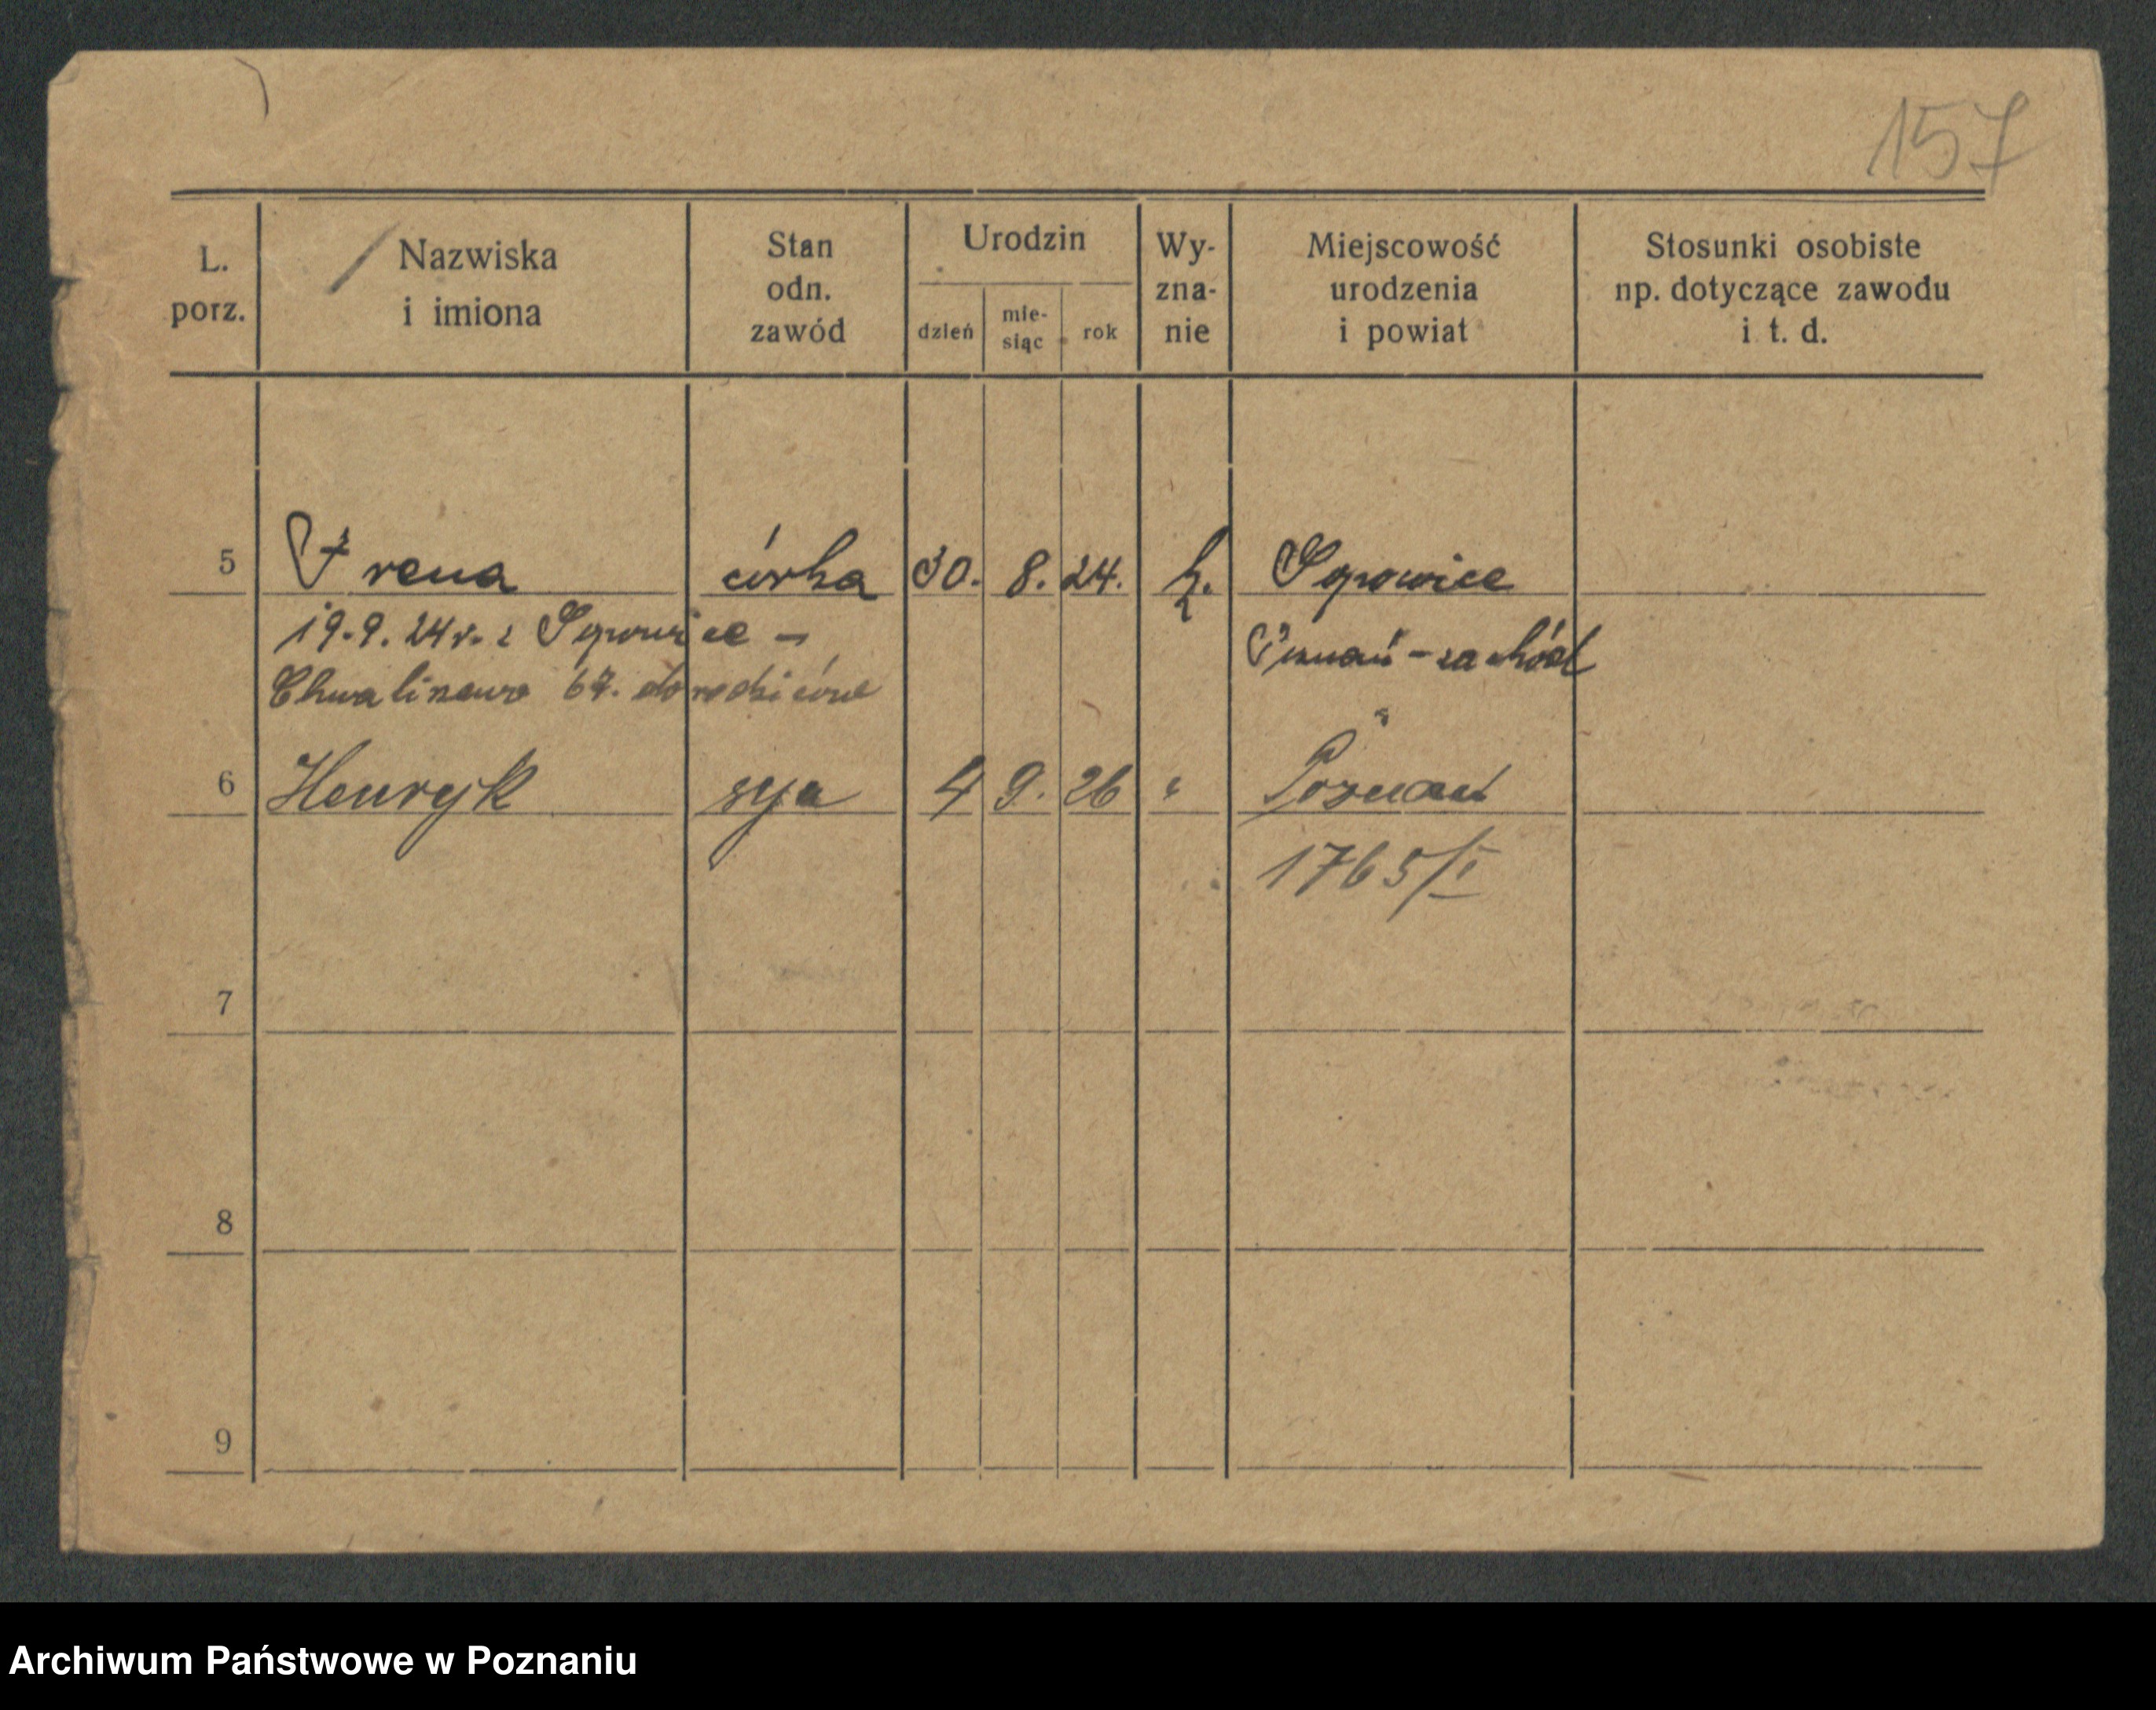 157
L. porz.
Nazwiska i imiona
Stan odn. zawód
Urodzin
dzień
mie-siąc
rok
Wy-zna-nie
Miejscowość urodzenia i powiat
Stosunki osobiste np. dotyczące zawodu i t. d.
5 Irena córka 30. 8. 24. k. Sepowice
19.9.24 r. z Sepowice –
Poznań - zachód
67. do rodziców
6 Henryk syn 4 9. 26 " Poznań
1765/I
7
8
9
Archiwum Państwowe w Poznaniu